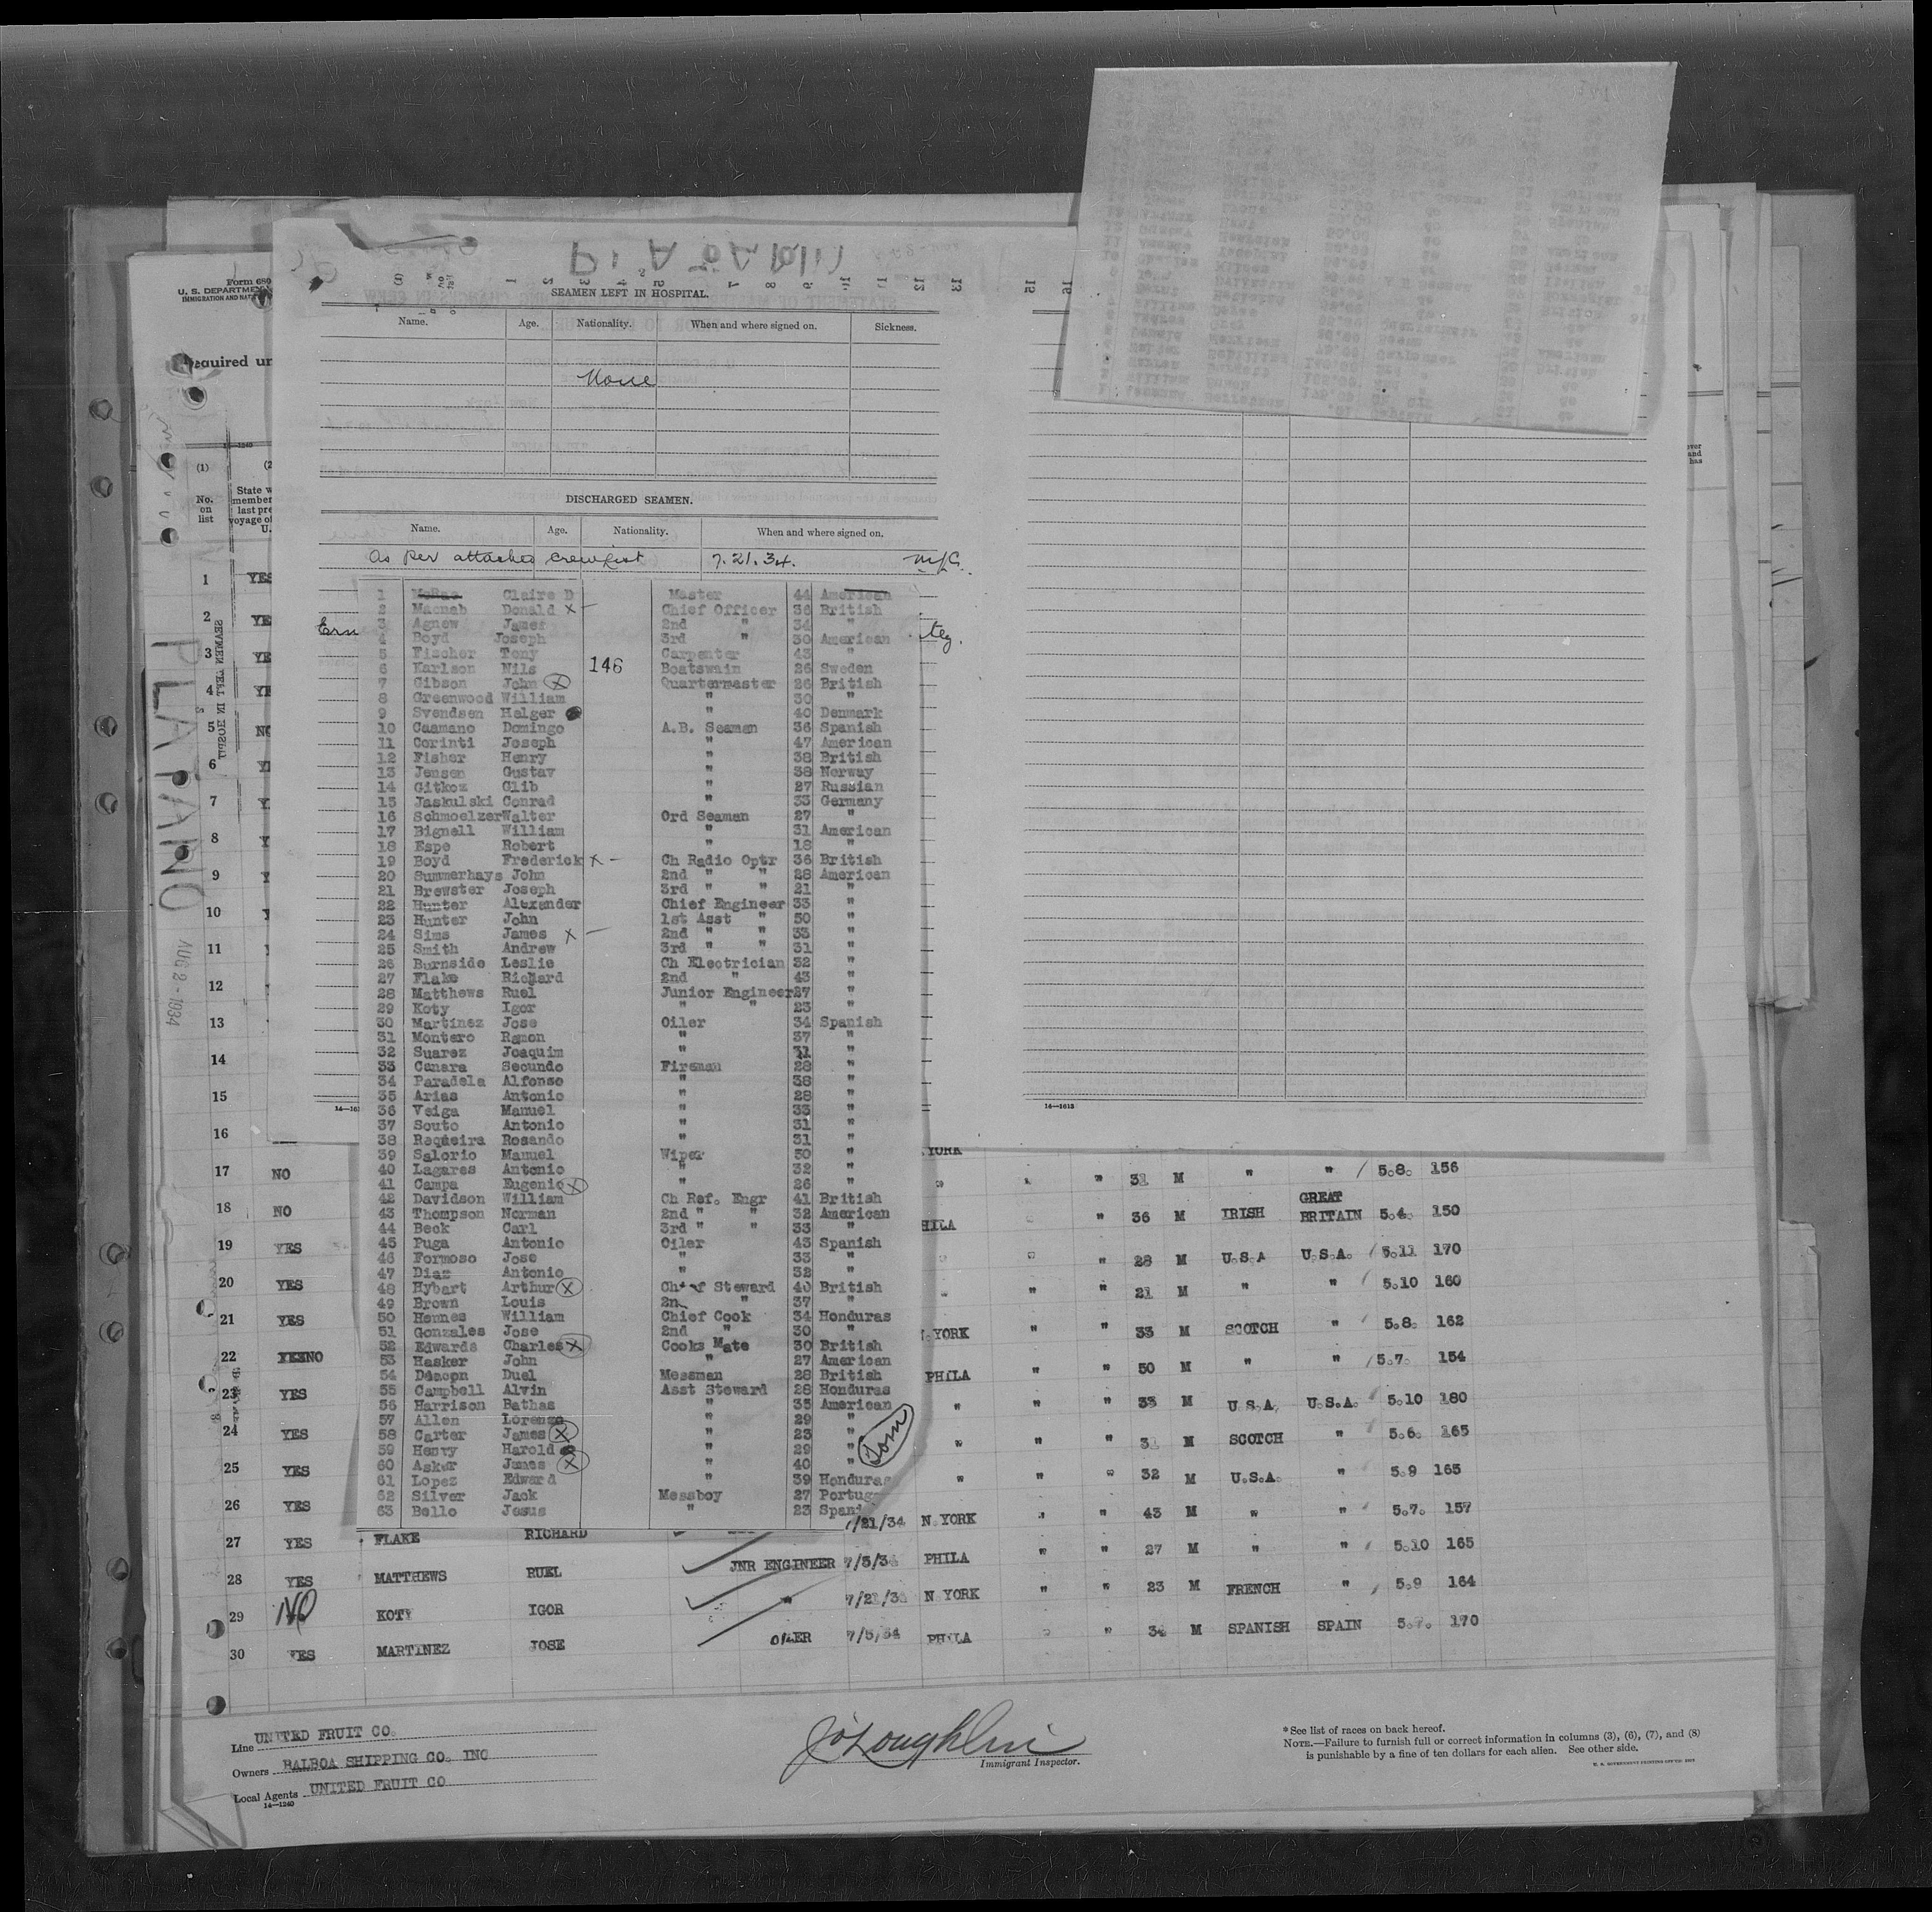 Form 680
U. S. DEPARTME
IMMIGRATION AND NAT
equired un
SEAMEN LEFT IN HOSPITAL.
Name. Age. Nationality. When and where signed on. Sickness.
None
DISCHARGED SEAMEN.
Name. Age. Nationality. When and where signed on.
As per attached crewlist 7.21.34.
146
1 McRae Claire D Master 44 American
2 Macnab Donald X Chief Officer 36 British
3 Agnew James 2nd " 34 "
4 Boyd Joseph 3rd " 30 American
5 Fischer Tony Carpenter 43 "
6 Karlson Nils Boatswain 26 Sweden
7 Gibson John X Quartermaster 26 British
8 Greenwood William " 30 "
9 Svendsen Helger " 40 Denmark
10 Caamano Domingo A.B. Seaman 36 Spanish
11 Corinti Joseph " 47 American
12 Fisher Henry " 38 British
13 Jensen Gustav " 38 Norway
14 Gitkoz Glib " 27 Russian
15 Jaskulski Conrad " 33 Germany
16 Schmoelzer Walter Ord Seaman 27 "
17 Bignell William " 31 American
18 Espe Robert " 18 "
19 Boyd Frederick X - Ch Radio Optr 36 British
20 Summerhays John 2nd " " 28 American
21 Brewster Joseph 3rd " " 21 "
22 Hunter Alexander Chief Engineer 33 "
23 Hunter John 1st Asst " 50 "
24 Sims James X - 2nd " " 33 "
25 Smith Andrew 3rd " " 31 "
26 Burnside Leslie Ch Electrician 32 "
27 Flake Richard 2nd " 43 "
28 Matthews Ruel Junior Engineer 27 "
29 Koty Igor " " 23 "
30 Martinez Jose Oiler 34 Spanish
31 Montero Ramon " 37 "
32 Suarez Joaquim " 31 "
33 Canara Secundo Fireman 28 "
34 Paradela Alfonso " 38 "
35 Arias Antonio " 28 "
36 Veiga Manuel " 33 "
37 Souto Antonio " 31 "
38 Requeira Rosando " 31 "
39 Salorio Manuel Wiper 30 "
40 Lagares Antonio " 32 "
41 Campa Eugenio X " 26 "
42 Davidson William Ch Ref. Engr 41 British
43 Thompson Norman 2nd " " 32 American
44 Beck Carl 3rd " " 33 "
45 Puga Antonio Oiler 43 Spanish
46 Formoso Jose " 33 "
47 Diaz Antonio " 32 "
48 Hybart Arthur X Chief Steward 40 British
49 Brown Louis 2nd " 37 "
50 Hennes William Chief Cook 34 Honduras
51 Gonzales Jose 2nd " 30 "
52 Edwards Charles X Cooks Mate 30 British
53 Hasker John " 27 American
54 Deacon Duel Messman 28 British
55 Campbell Alvin Asst Steward 28 Honduras
56 Harrison Bathas " 35 American
57 Allen Lorenzo " 29 "
58 Carter James X " 23 "
59 Henry Harold " 29 "
60 Asker James X " 40 "
61 Lopez Edward " 39 Honduras
62 Silver Jack Messboy 27 Portug
63 Bello Jesus " 23 Spani
14—1613
PLATANO
AUG 2 - 1934
SEAMEN LEFT IN HOSPIT
(1) No. on list
State w
member
last pre
voyage of
U.
1 YES
2 YE
3 YE
4 YE
5 NO
6
7
8
9
10
11
12
13
14
15
16 YORK
17 NO " 31 M " " 5.8. 156
18 NO HILA " 36 M IRISH GREAT BRITAIN 5.4. 150
19 YES " 28 M U.S.A U.S.A. 5.11 170
20 YES " " " 21 M " " 5.10 160
21 YES N.YORK " " 33 M SCOTCH " 5.8. 162
22 YESNO PHILA " " 50 M " " 5.7. 154
23 YES " " " 33 M U.S.A. U.S.A. 5.10 180
24 YES " " " 31 M SCOTCH " 5.6. 165
25 YES " " " 32 M U.S.A. " 5.9 165
26 YES /21/34 N.YORK " " 43 M " " 5.7. 157
27 YES FLAKE RICHARD PHILA " " 27 M " " 5.10 165
28 YES MATTHEWS RUEL JNR ENGINEER 7/5/34 N YORK " " 23 M FRENCH " 5.9 164
29 NO KOTY IGOR " 7/21/34
30 YES MARTINEZ JOSE OILER 7/5/34 PHILA " " 34 M SPANISH SPAIN 5.7. 170
Line UNITED FRUIT CO.
Owners BALBOA SHIPPING CO. INC
Local Agents UNITED FRUIT CO
14—1240
J O'Loughlin
Immigrant Inspector.
* See list of races on back hereof.
NOTE.—Failure to furnish full or correct information in columns (3), (6), (7), and (8)
is punishable by a fine of ten dollars for each alien. See other side.
U. S. GOVERNMENT PRINTING OFFICE: 1932